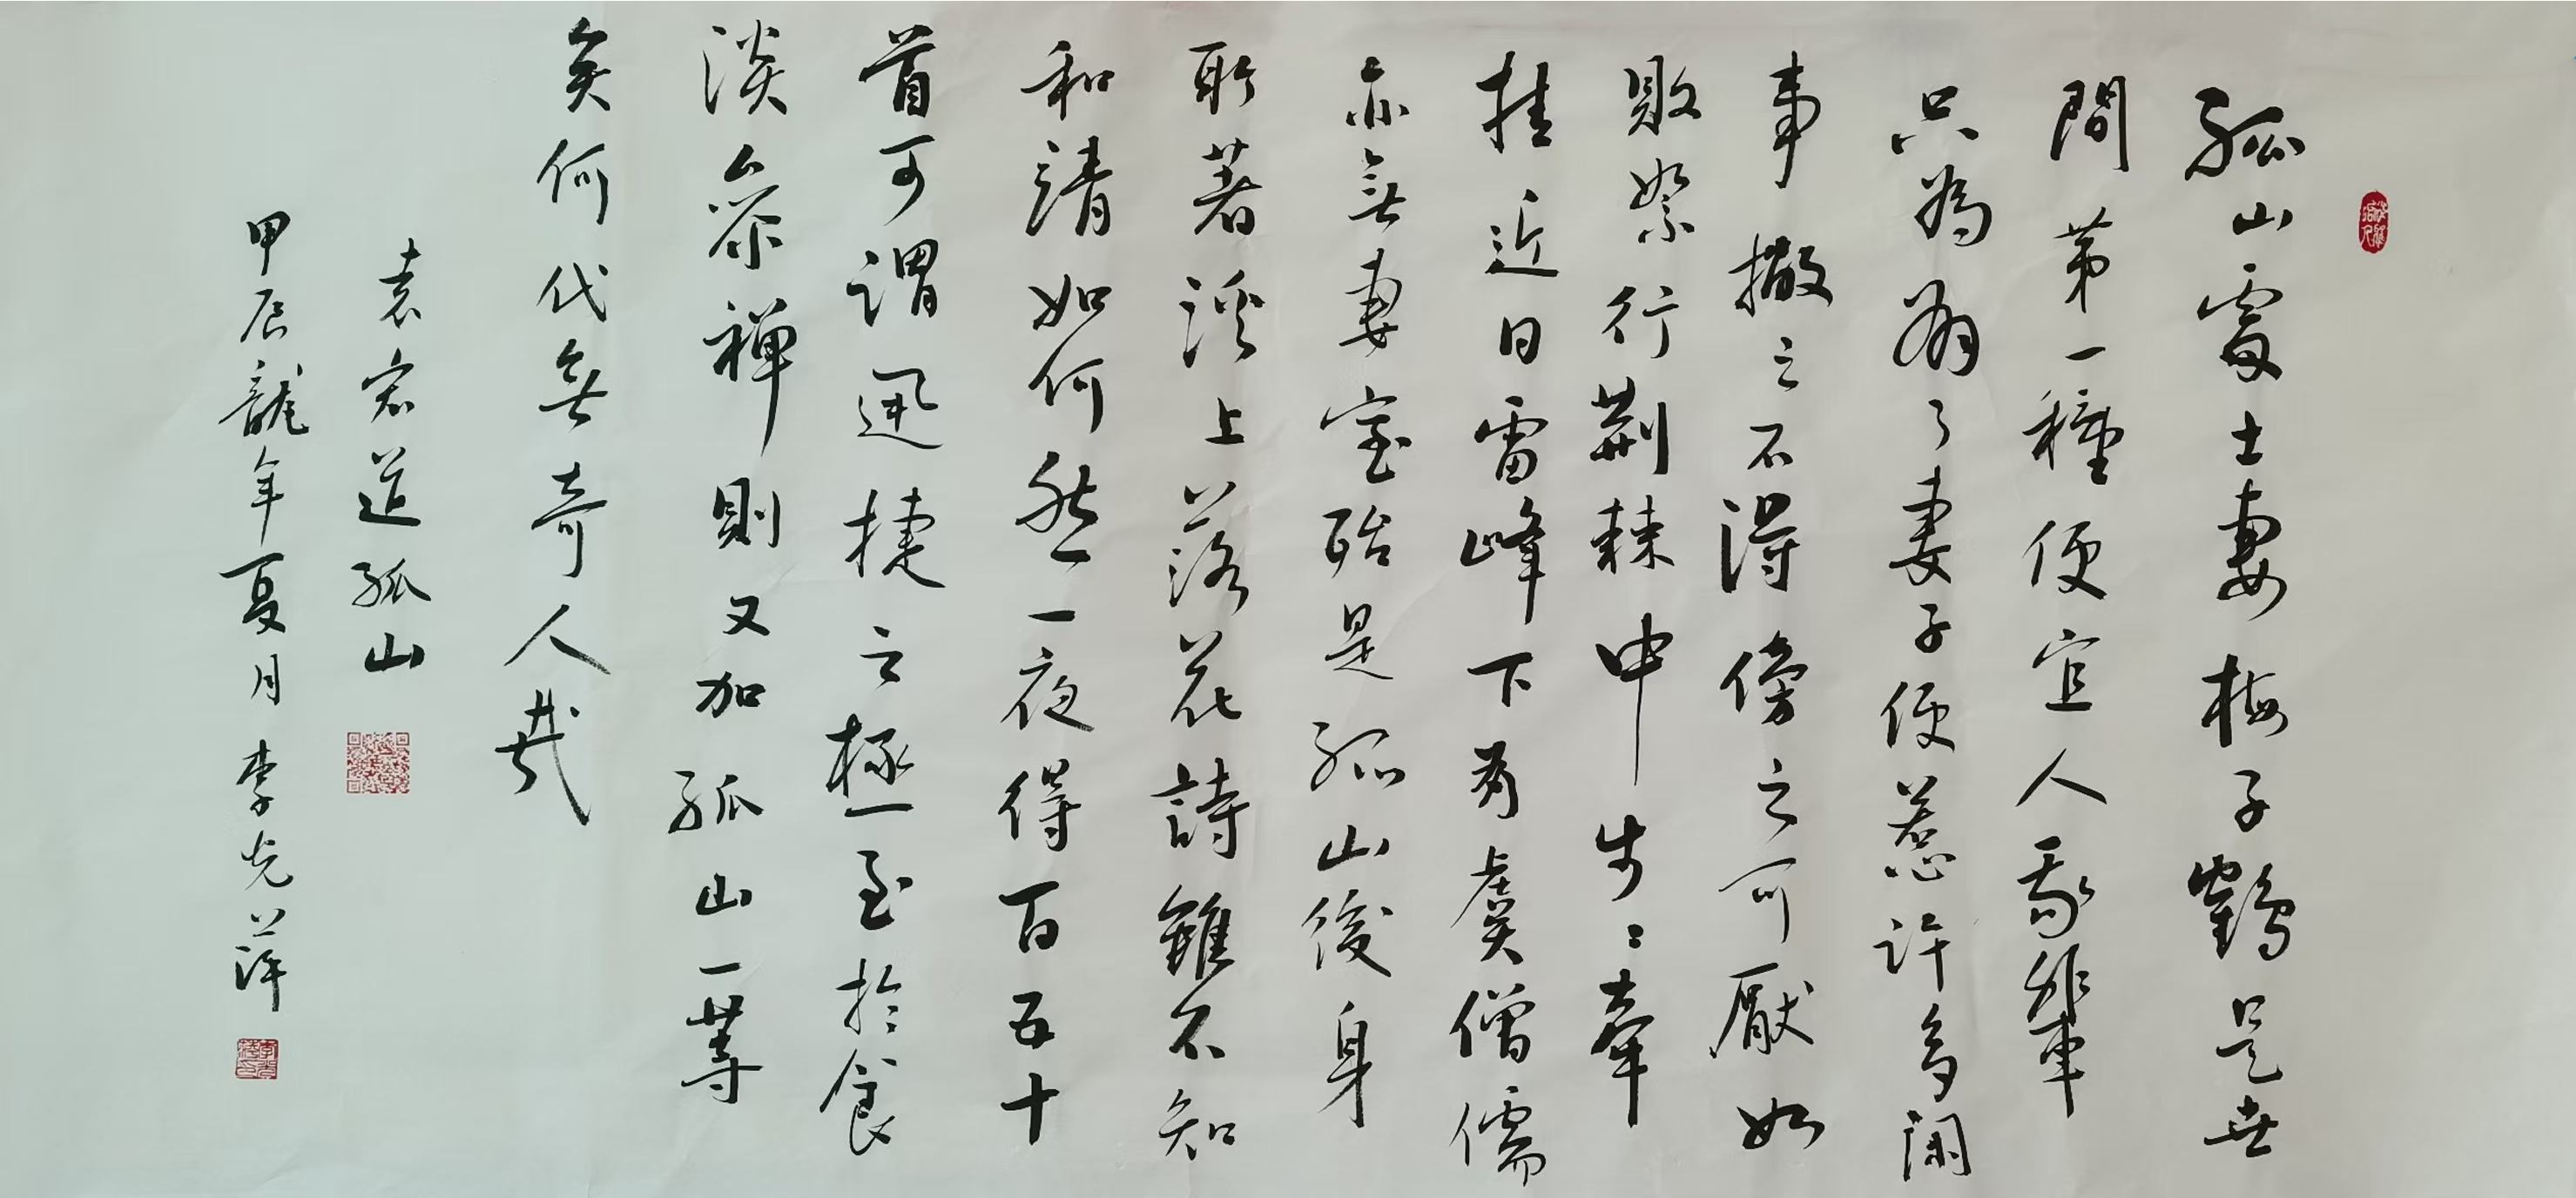 孤山處士妻梅子鶴是世
間第一種便宜人我輩
只為有了妻子便惹許多閑
事撇之不得傍之可厭如
敗絮行荊棘中步〻牽
挂近日雷峰下有虞僧儒
亦無妻室殆是孤山後身
所著溪上落花詩雖不知
和靖如何然一夜得百五十
首可謂迅捷之極至於食
淡參禪則又加孤山一等
矣何代無奇人哉
袁宏道孤山
甲辰龍年夏月李光萍